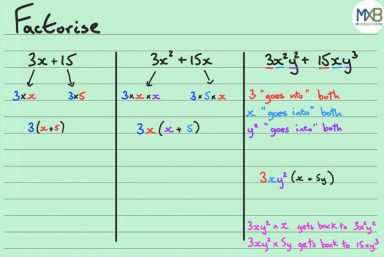 Factorise
MXB
3x + 15
3 × x 3 × 5
3(x+5)
3x² + 15x
3 × x × x 3 × 5 × x
3x(x+5)
3x²y² + 15xy³
3 "goes into" both
x "goes into" both
y² "goes into" both
3xy²(x + 5y)
3xy² × x gets back to 3x²y²
3xy² × 5y gets back to 15xy³